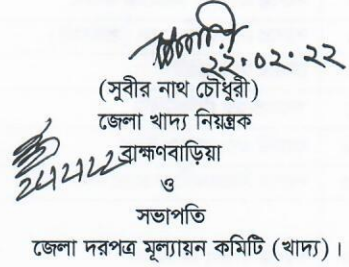 ২২.০২.২২
(সুবীর নাথ চৌধুরী)
জেলা খাদ্য নিয়ন্ত্রক
ব্রাহ্মণবাড়িয়া
ও
সভাপতি
জেলা দরপত্র মূল্যায়ন কমিটি (খাদ্য)।